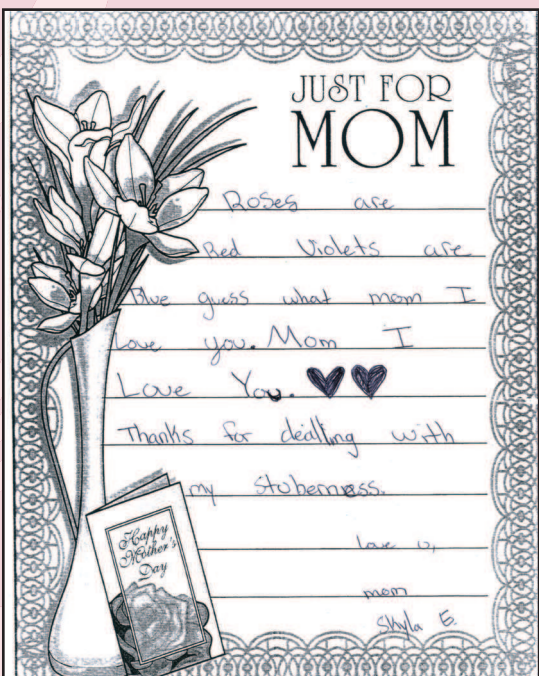 JUST FOR
MOM
Roses are
Red Violets are
Blue guess what mom I
Love you. Mom I
Love You.
Thanks for dealling with
my stuberness.
love u,
mom
Shyla E.
Happy
Mother's
Day